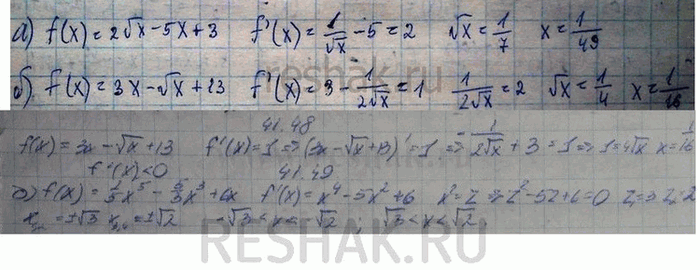 а) f(x) = 2√x - 5x + 3 f'(x) = 1/√x - 5 = 2 √x = 1/7 x = 1/49
б) f(x) = 3x - √x + 13 f'(x) = 3 - 1/(2√x) = 1 1/(2√x) = 2 √x = 1/4 x = 1/16
reshak.ru
41.48
f(x) = 3x - √x + 13 f'(x) = 1 => (3x - √x + 13)' = 1 => -1/(2√x) + 3 = 1 => 1 = 4√x x = 1/16
f'(x) < 0 41.49
f(x) = 1/5x⁵ - 5/3x³ + 6x f'(x) = x⁴ - 5x² + 6 x² = z => z² - 5z + 6 = 0 z₁ = 3 z₂ = 2
= ±√3 = ±√2 -√3 < x < -√2 ; √3 < x < √2.
RESHAK.RU